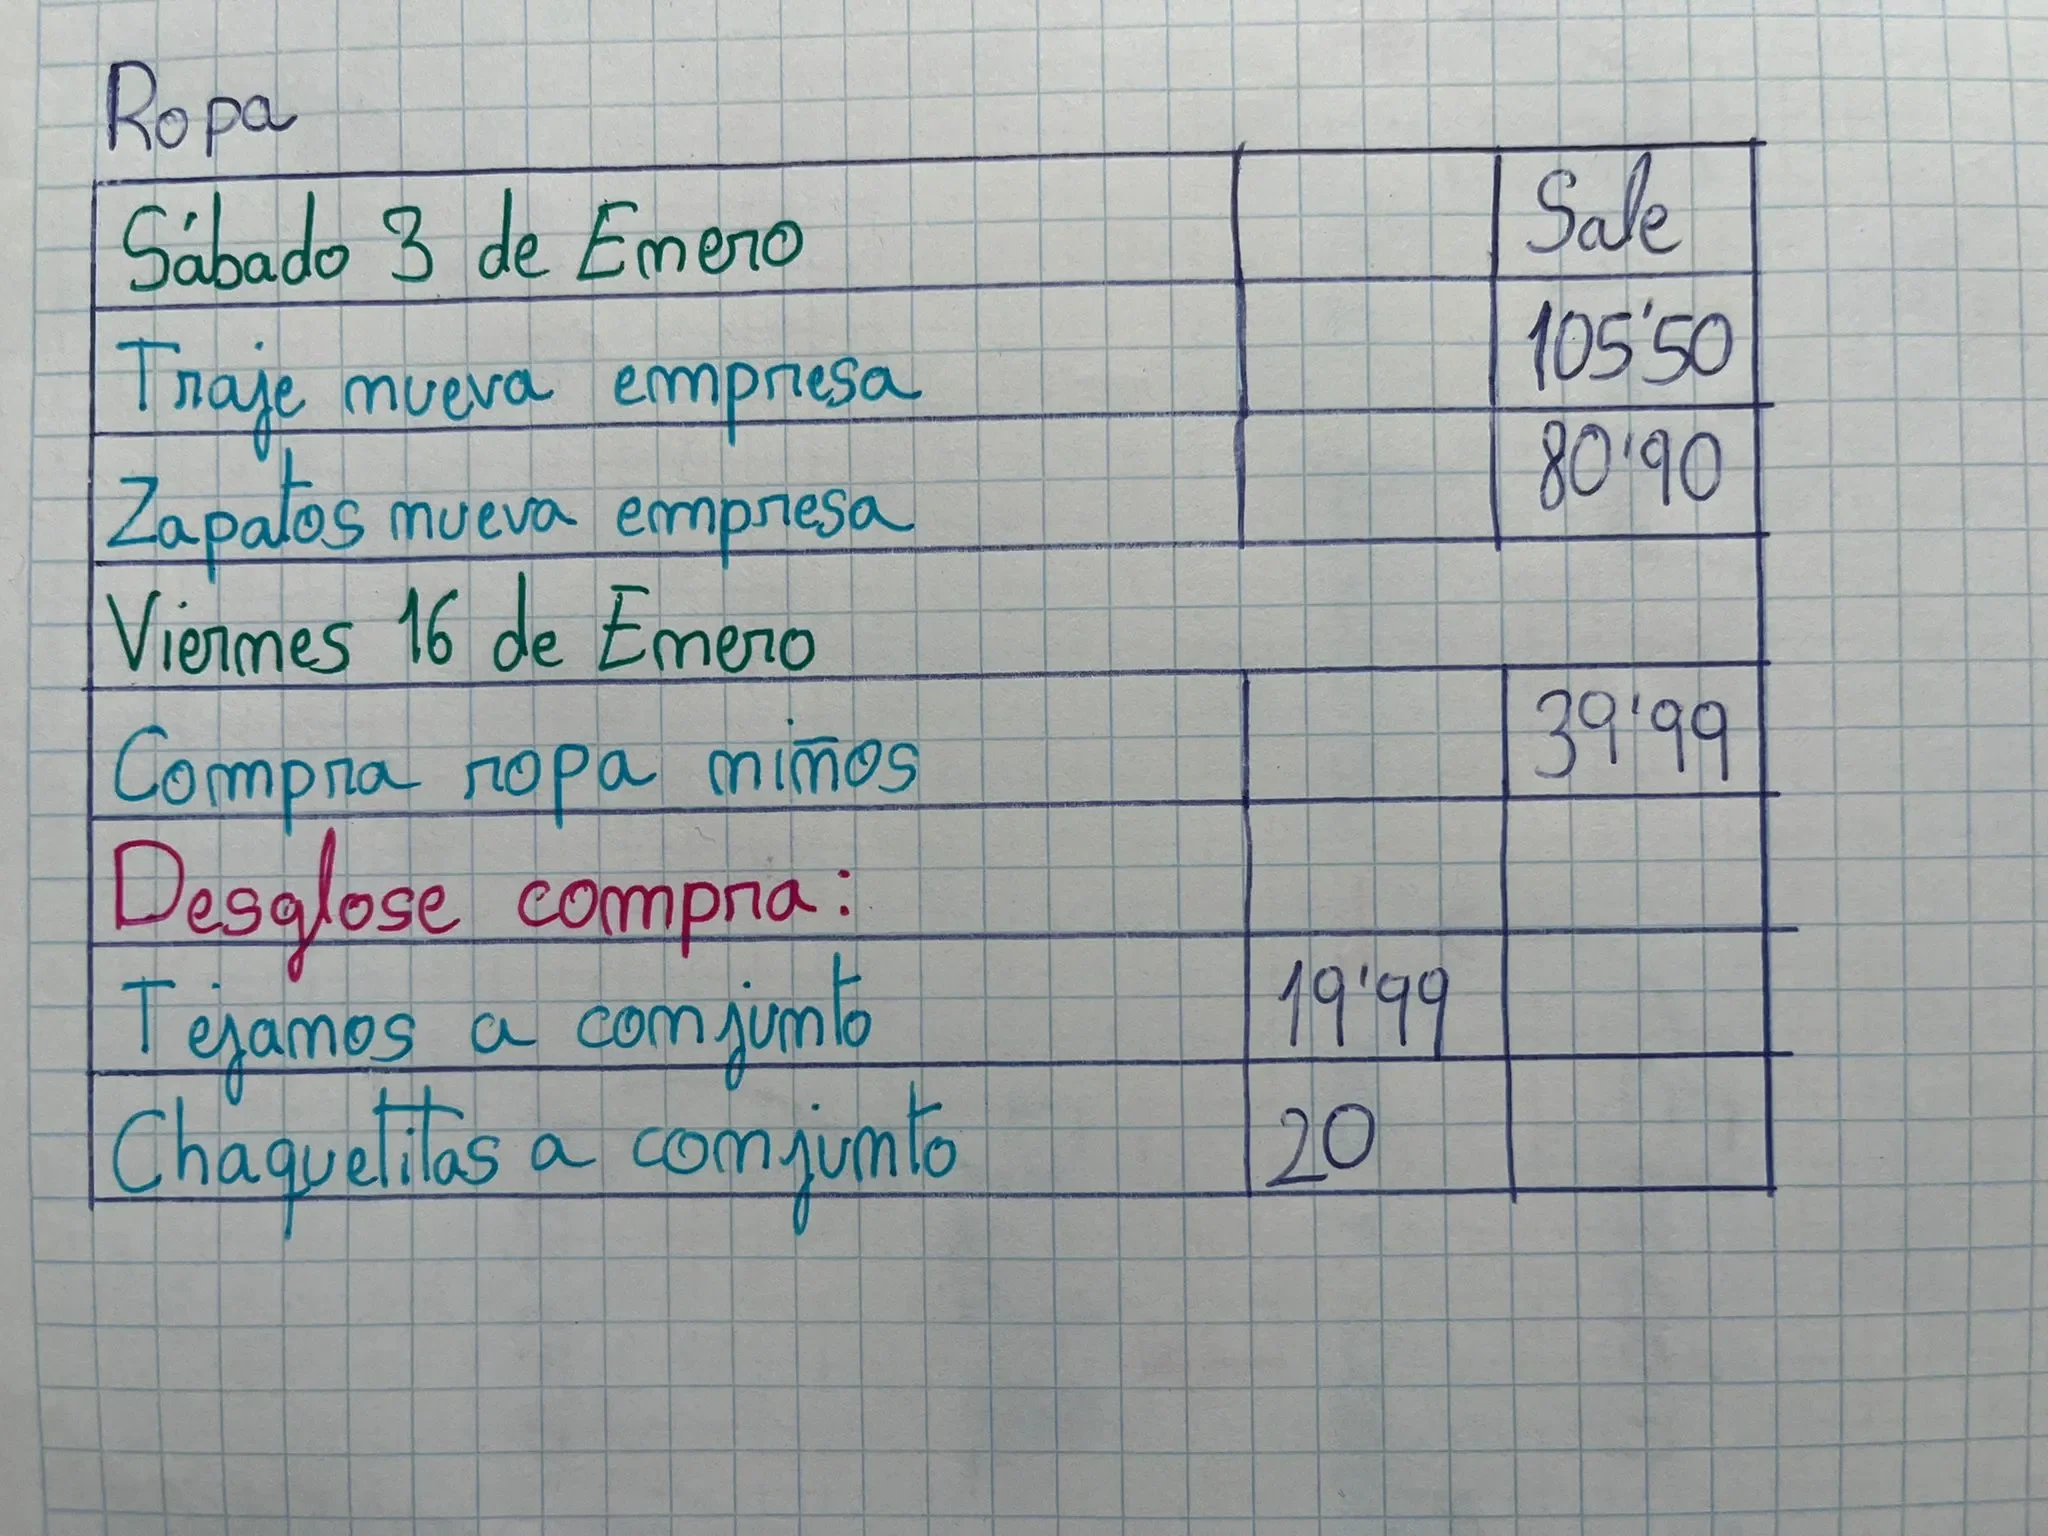 Ropa
Sábado 3 de Enero Sale
Traje nueva empresa 105'50
Zapatos nueva empresa 80'90
Viernes 16 de Enero
Compra ropa niños 39'99
Desglose compra:
Tejanos a conjunto 19'99
Chaquetitas a conjunto 20